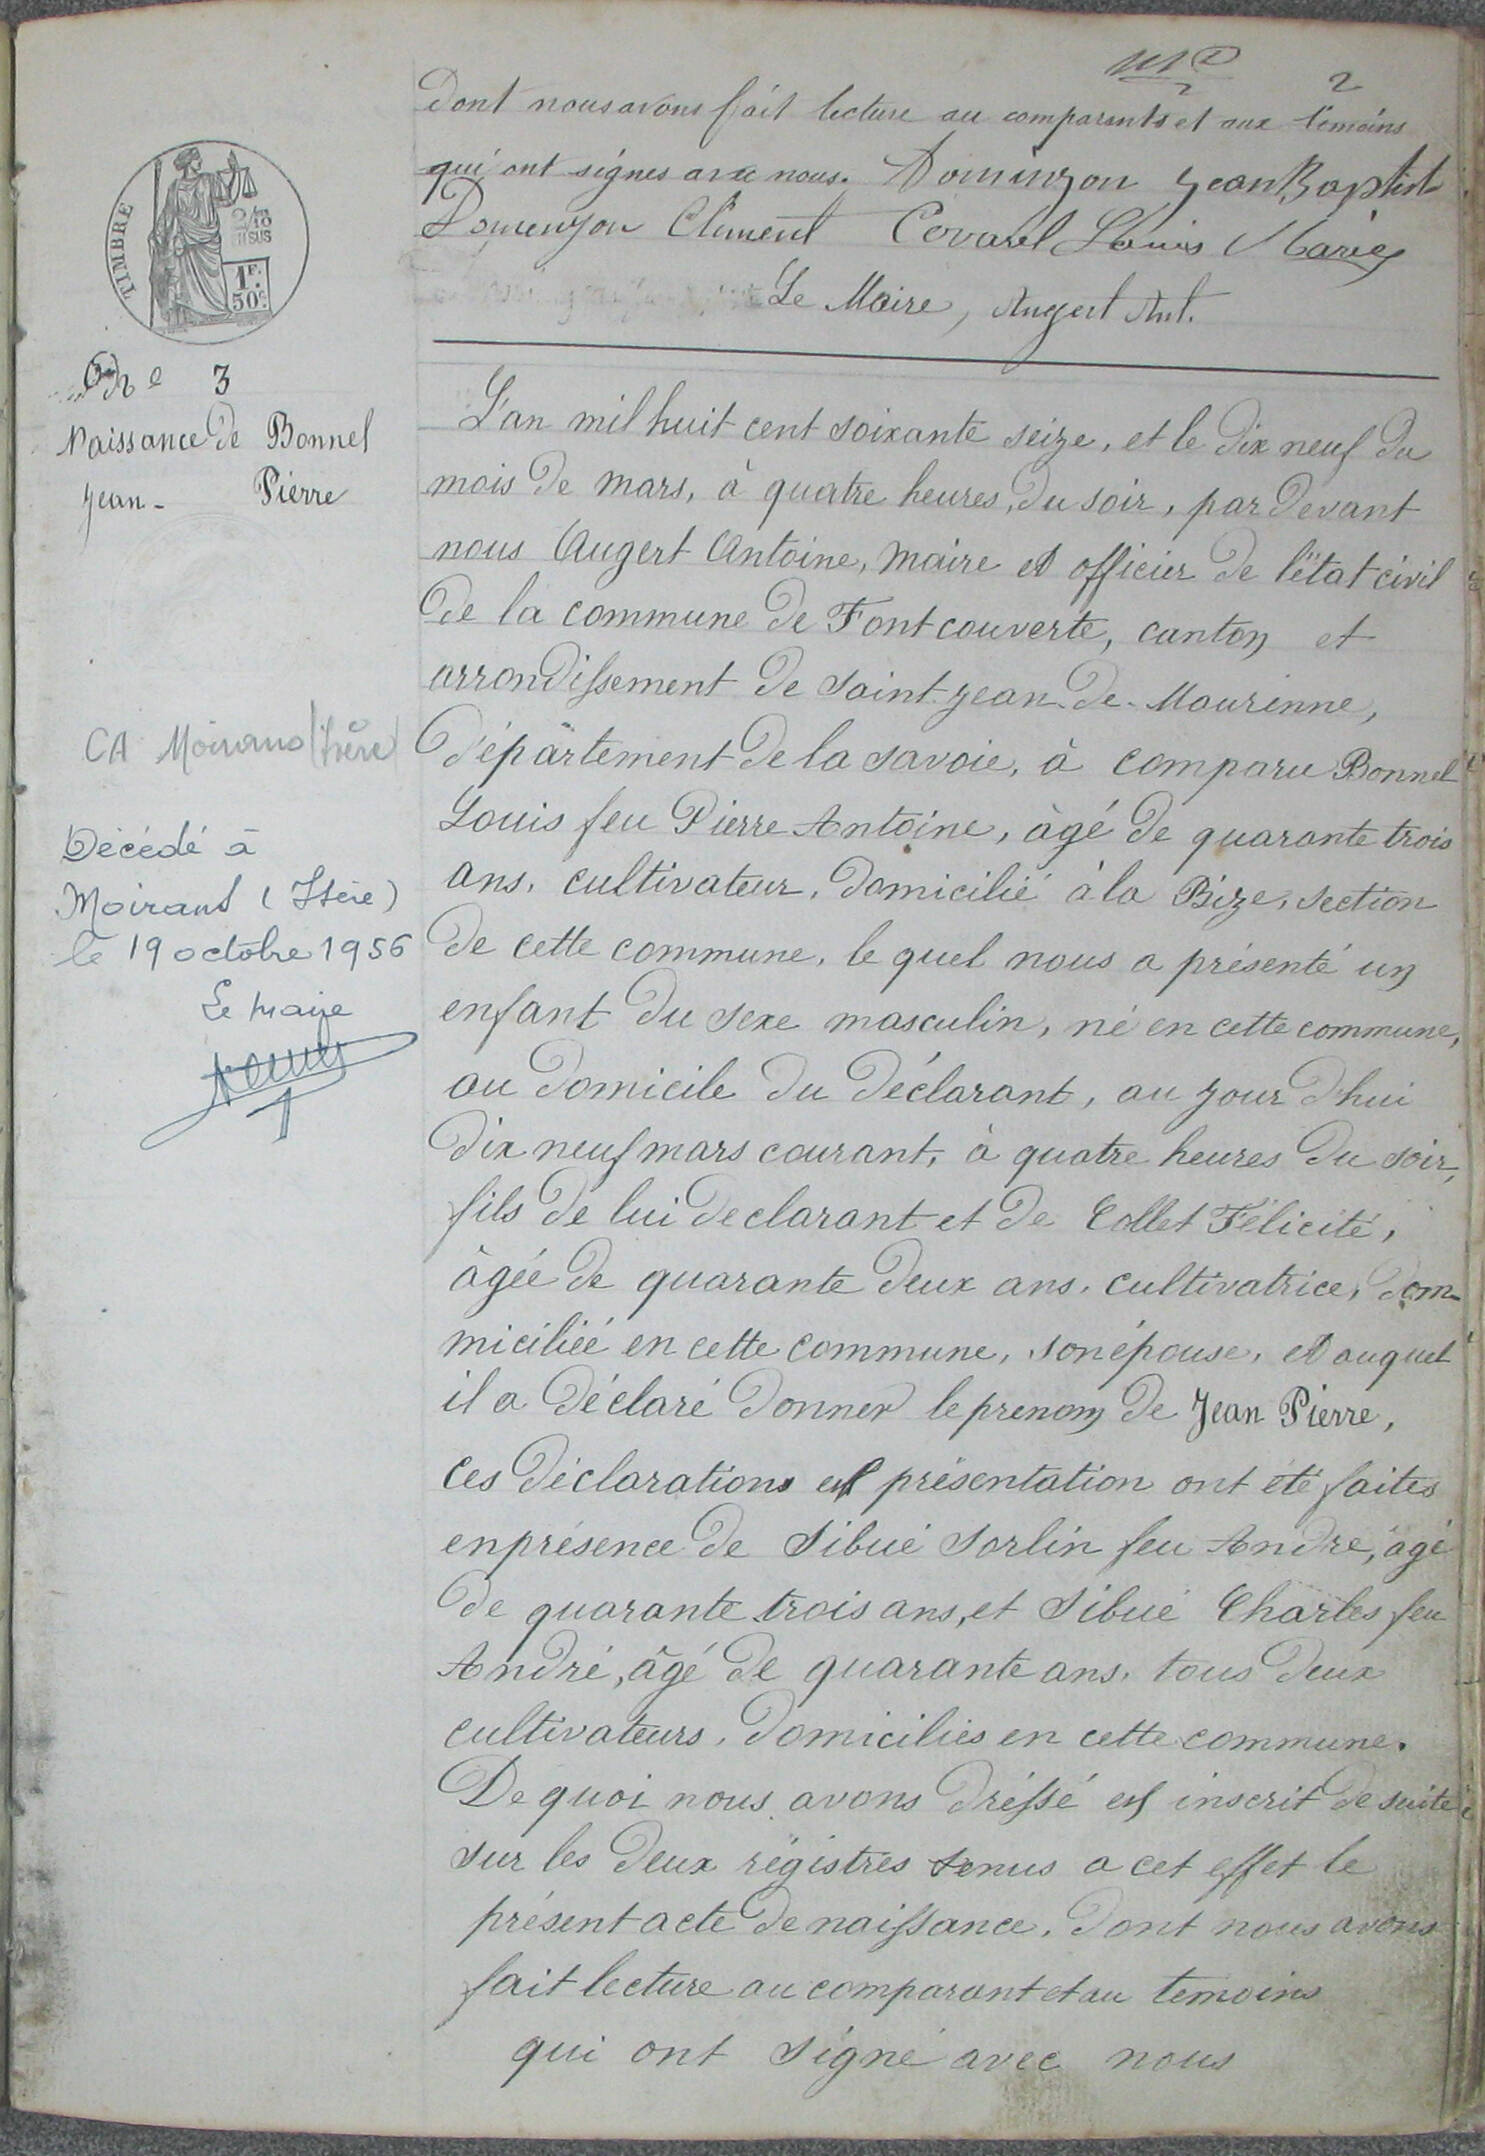 2
Dont nous avons fait lecture au comparants et aux témoins
qui ont signés avec nous. Dominzon Jean Baptist
Domenzon Clément Covarel Louis Marie
Le Maire, Augert Ant.
TIMBRE
2/10
EN SUS
1F.
50c.
N° 3
Naissance de Bonnel
Jean-Pierre
CA Moirans (Isère)
Décédé à
Moirans (Isère)
le 19 octobre 1956
Le maire
L'an mil huit cent soixante seize, et le dix neuf du
mois de mars, à quatre heures, du soir, par devant
nous Augert Antoine, maire et officier de l'état civil
de la commune de Fontcouverte, canton et
arrondissement de saint-jean-de-Maurienne,
département de la savoie, à comparu Bonnel
Louis feu Pierre Antoine, âgé de quarante trois
ans, cultivateur, domicilié à la Bize, section
de cette commune, le quel nous a présenté un
enfant du sexe masculin, né en cette commune,
au domicile du déclarant, au jour d'hui
dix neuf mars courant, à quatre heures du soir,
fils de lui declarant et de Collet Félicité,
âgée de quarante deux ans, cultivatrice, dom-
miciliée en cette commune, son épouse, et auquel
il a déclaré donner le prenom de Jean Pierre,
ces déclarations et présentation ont été faites
en présence de Sibué Sorlin feu André, âgé
de quarante trois ans, et Sibué Charles feu
André, âgé de quarante ans, tous deux
cultivateurs, domiciliés en cette commune.
De quoi nous avons dréssé et inscrit de suite
sur les deux régistres tenus a cet effet le
présent acte de naissance, dont nous avons
fait lecture au comparant et au temoins
qui ont signé avec nous